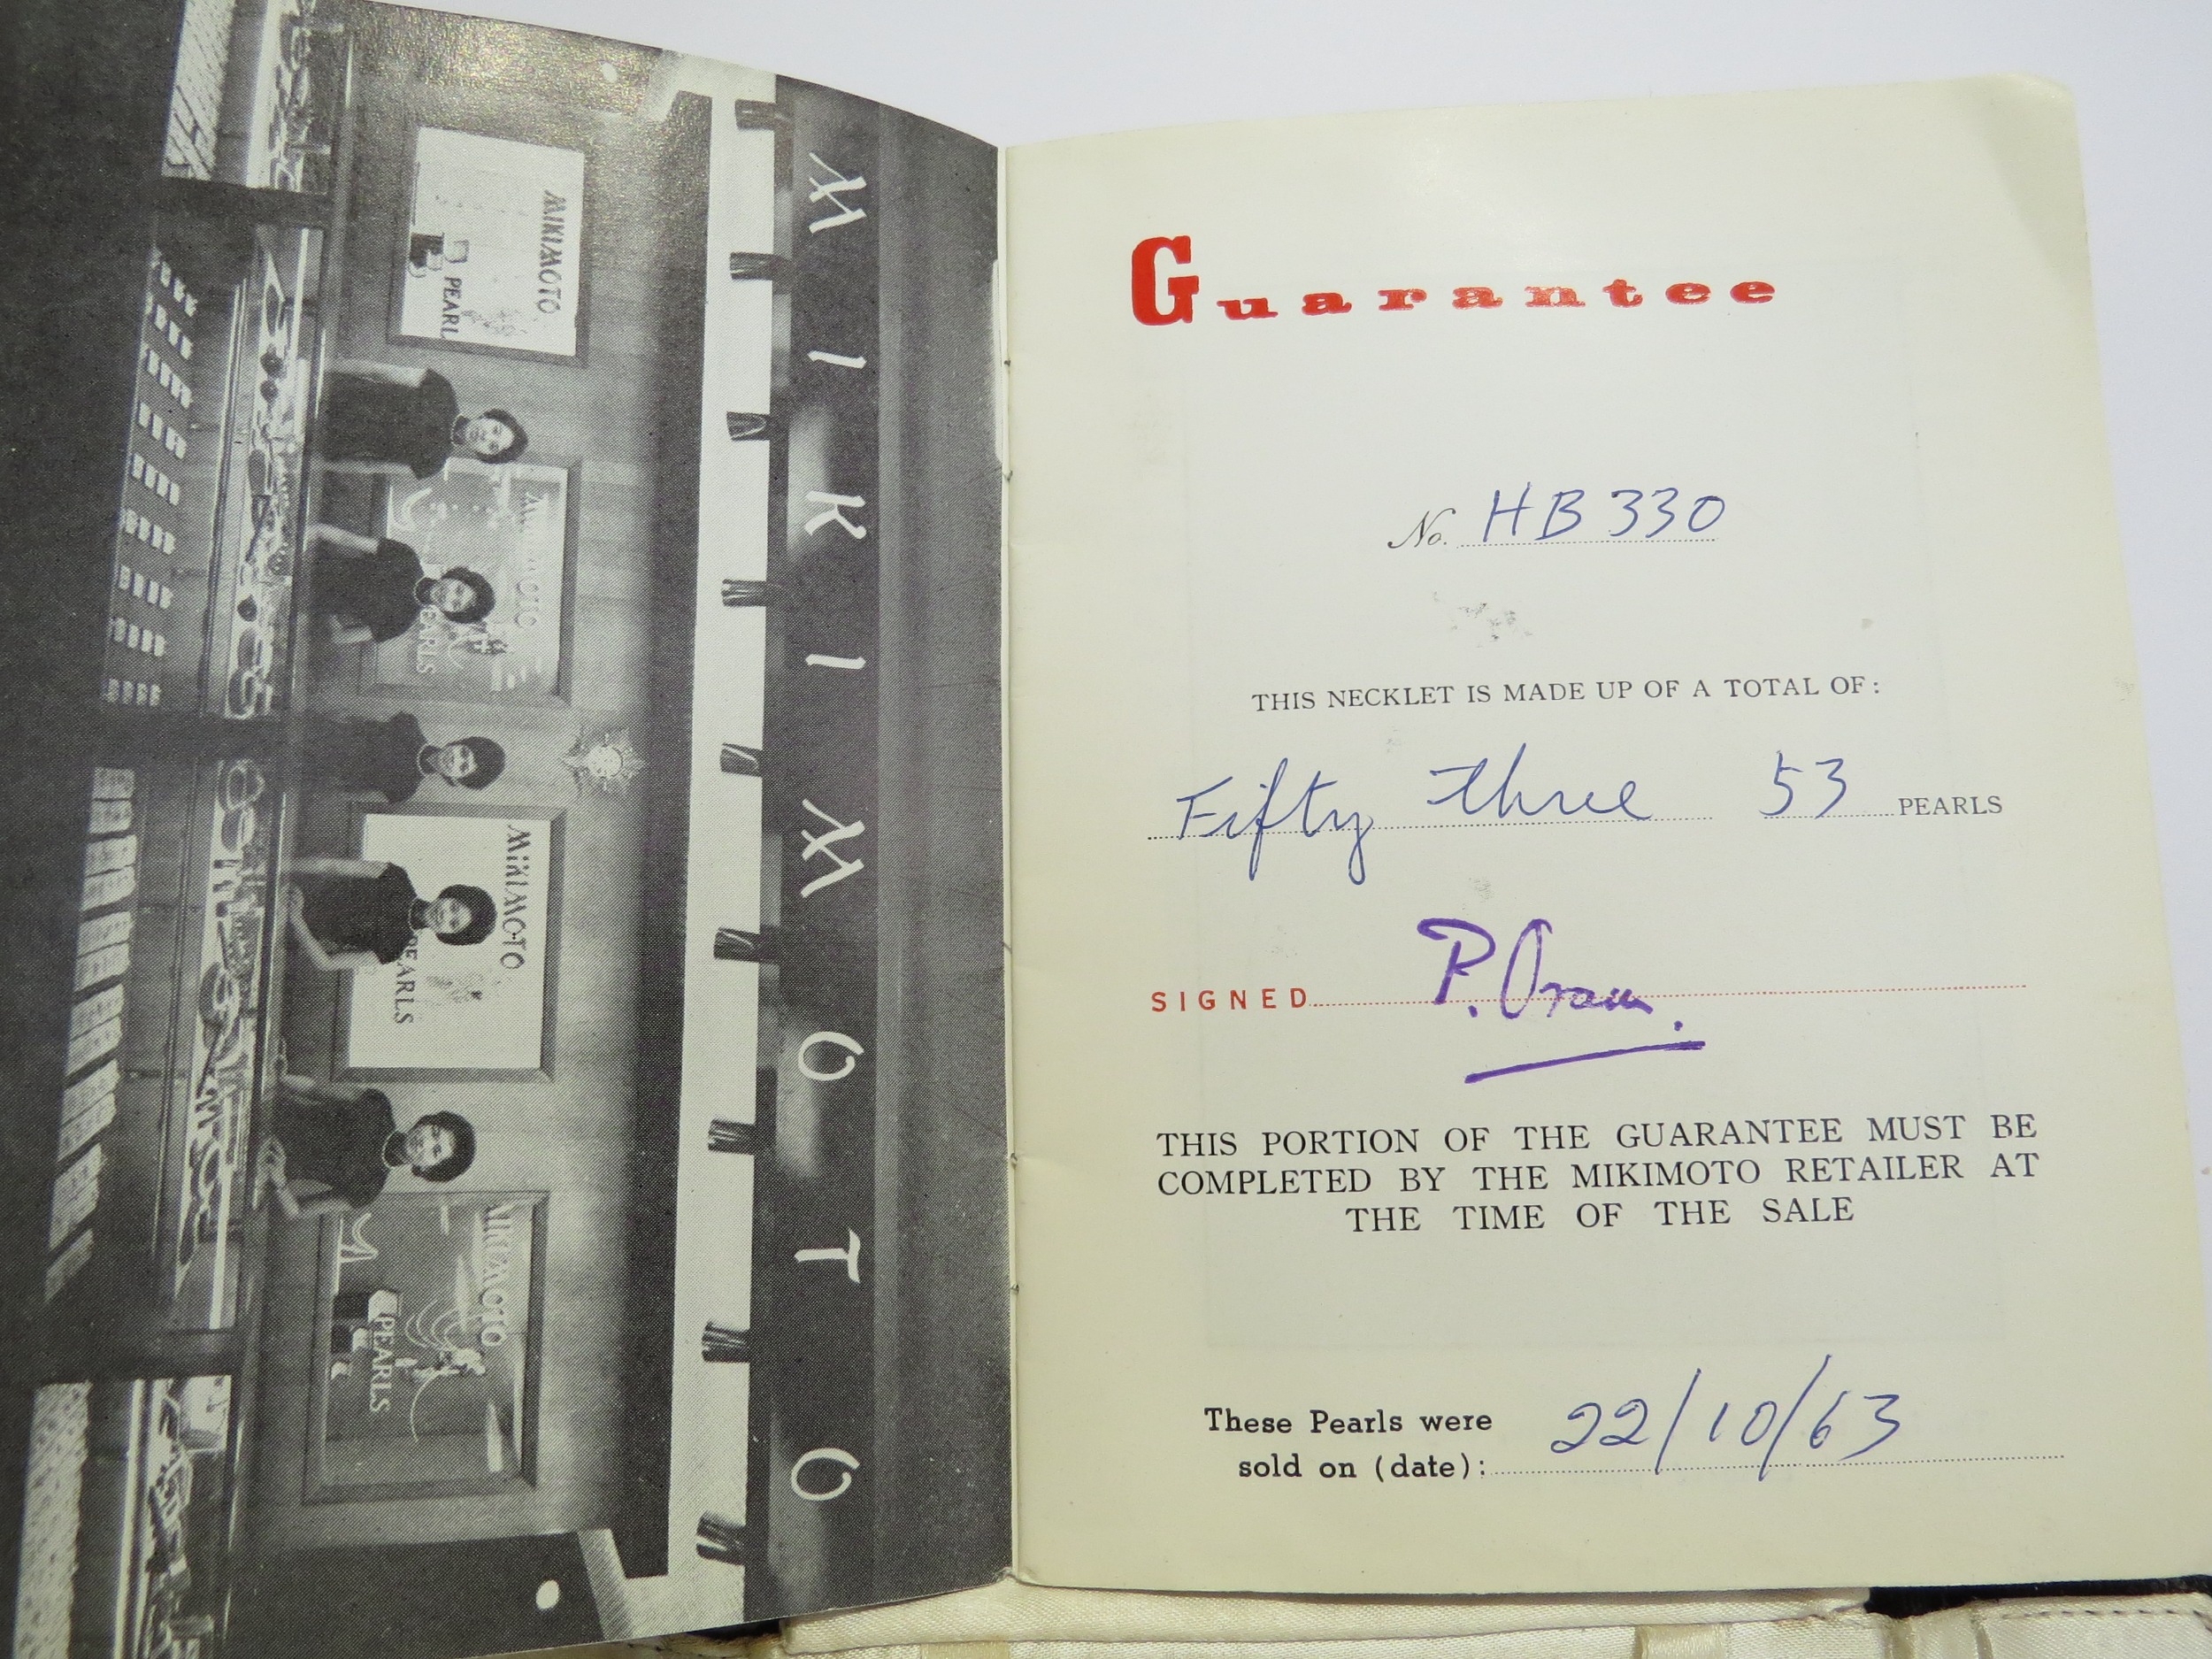 MIKIMOTO
MIKIMOTO
PEARL
MIKIMOTO
PEARLS
MIKIMOTO
PEARLS
MIKIMOTO
PEARLS
Guarantee
No. HB 330
THIS NECKLET IS MADE UP OF A TOTAL OF:
Fifty three 53 PEARLS
SIGNED P. Oram.
THIS PORTION OF THE GUARANTEE MUST BE
COMPLETED BY THE MIKIMOTO RETAILER AT
THE TIME OF THE SALE
These Pearls were
sold on (date): 22/10/63